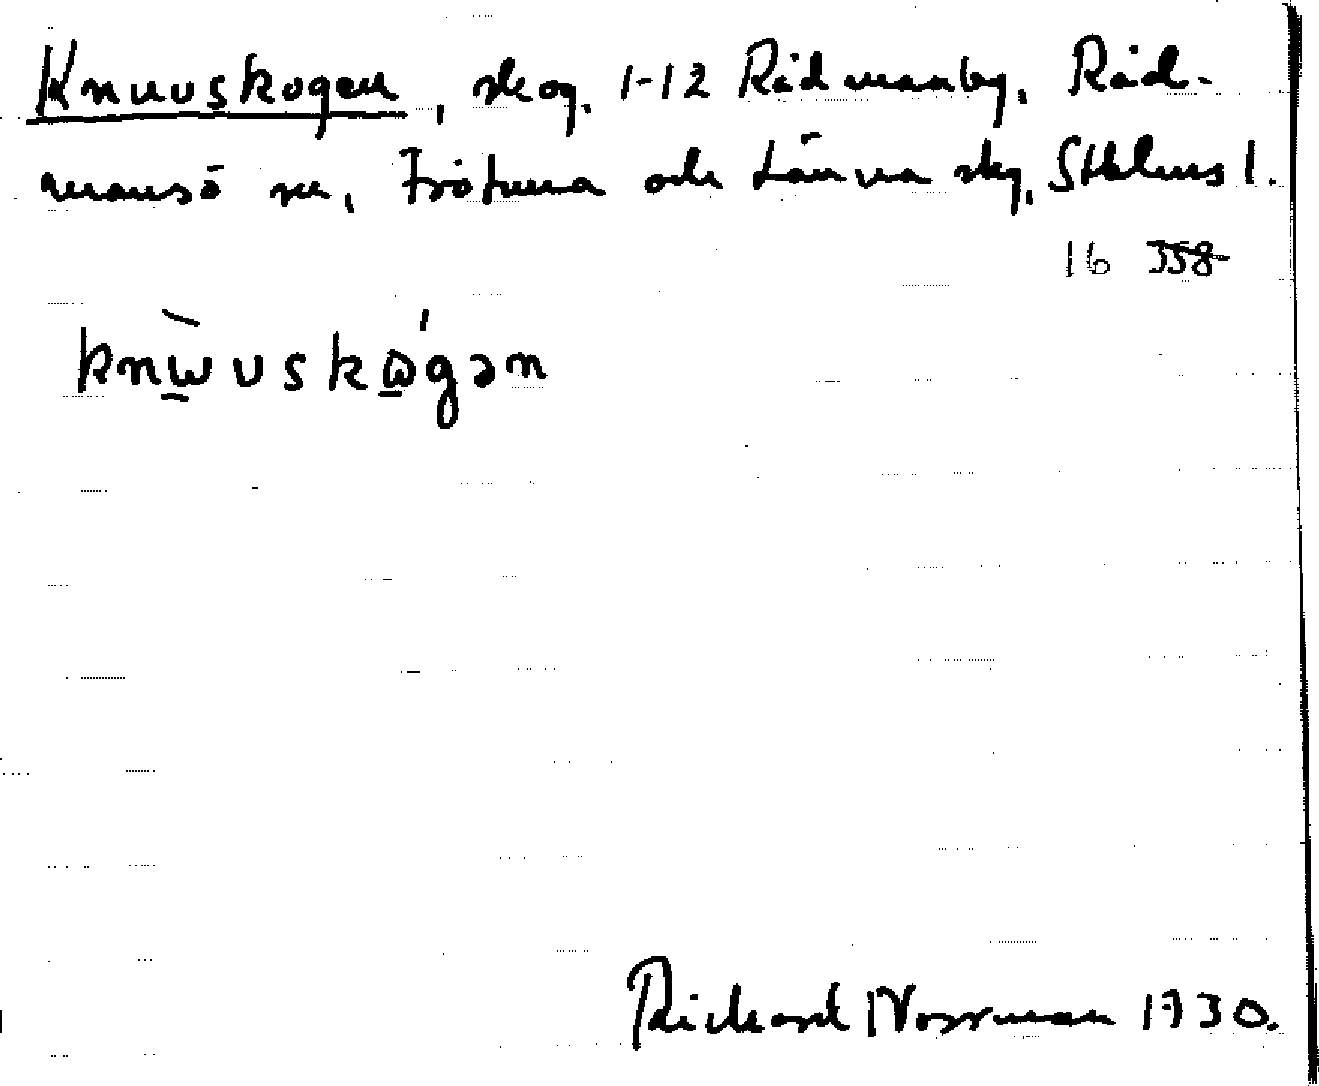 Knuvskogen, skog. 1-12 Rådmanby, Råd-
mansö sn, Frötuna och Länna sklg, Sthlms l.
16 358
knùvskógən
Richard Norrman 1930.